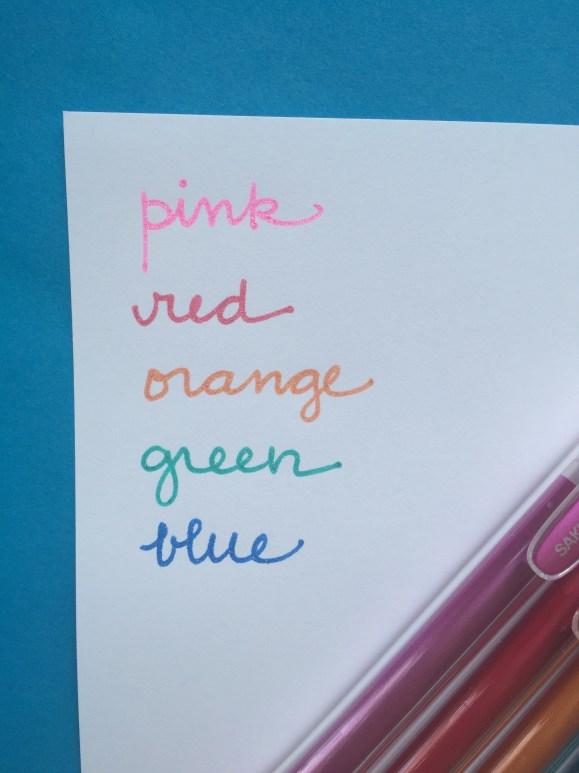 pink
red
orange
green
blue
SAK